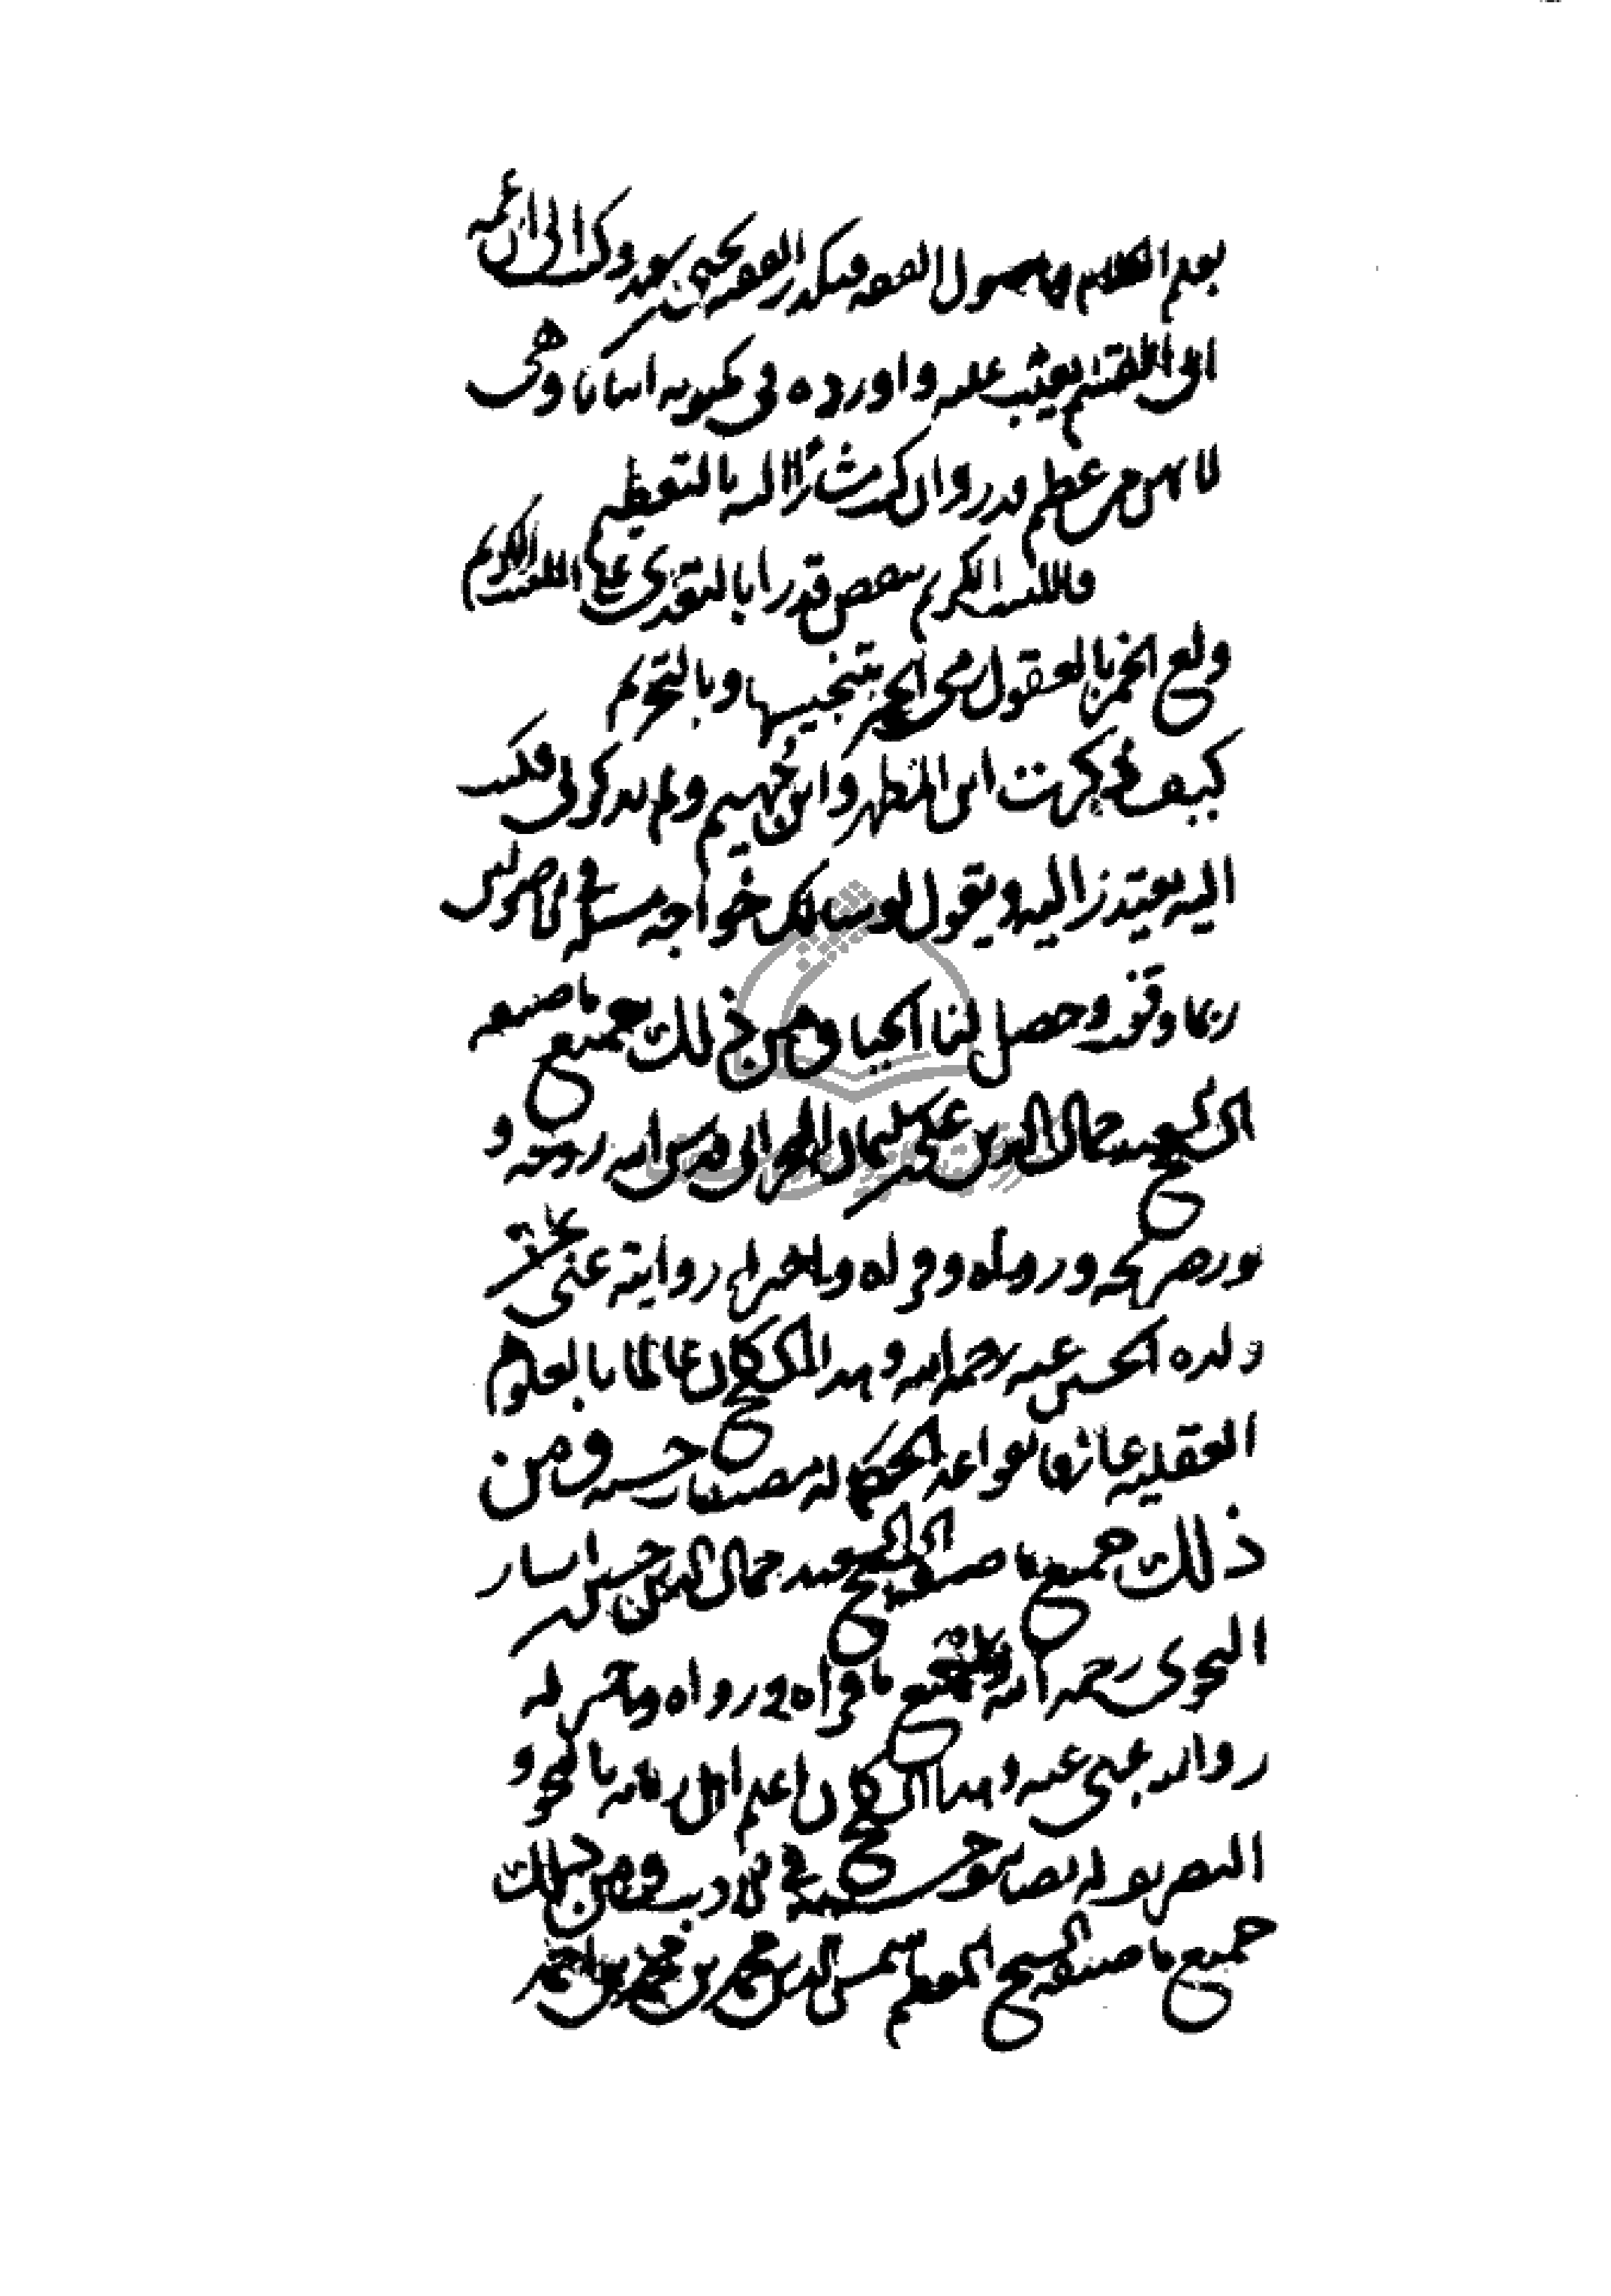 بعلم الكلام واصول الفقه فتكدر الفقيه يحيى بن سعيد وكتب الى ابن عمه
ابي القسم يعتب عليه واورد في مكتوبه ابياتا وهي
لا تهن من عظيم قدر وان كنت مشارًا اليه بالتعظيم
فاللبيب الكريم ينقص قدرا بالتعدي على اللبيب الكريم
ولع الخمر بالعقول رمى الخمر بتنجيسها وبالتحريم
كيف ذكرت ابن المطهر وابن جُهيم ولم تذكرني فكتب
اليه يعتذر اليه ويقول لو سالك خواجه مسئلة في الاصولين
ربما وقفت وحصل لنا الحيا ومن ذلك جميع ما صنفه
الشيخ السعيد جمال الدين علي بن سليمان البحراني قدس الله روحه و
نور ضريحه ورواه وقراه واجيز له روايته عني عن
ولده الحسين عنه رحمه الله وهذا الشيخ كان عالما بالعلوم
العقليه عارفا بقواعد الحكما له مصنفات حسنه ومن
ذلك جميع ما صنفه الشيخ السعيد جمال الدين حسين بن اياز
النحوي رحمه الله وجميع ما قراه ورواه واجيز له
روايته عني عنه وهذا الشيخ كان اعلم اهل زمانه بالنحو و
التصريف له تصانيف حسنة في الادب ومن ذلك
جميع ما صنفه الشيخ المعظم شمس الدين محمد بن محمد بن احمد